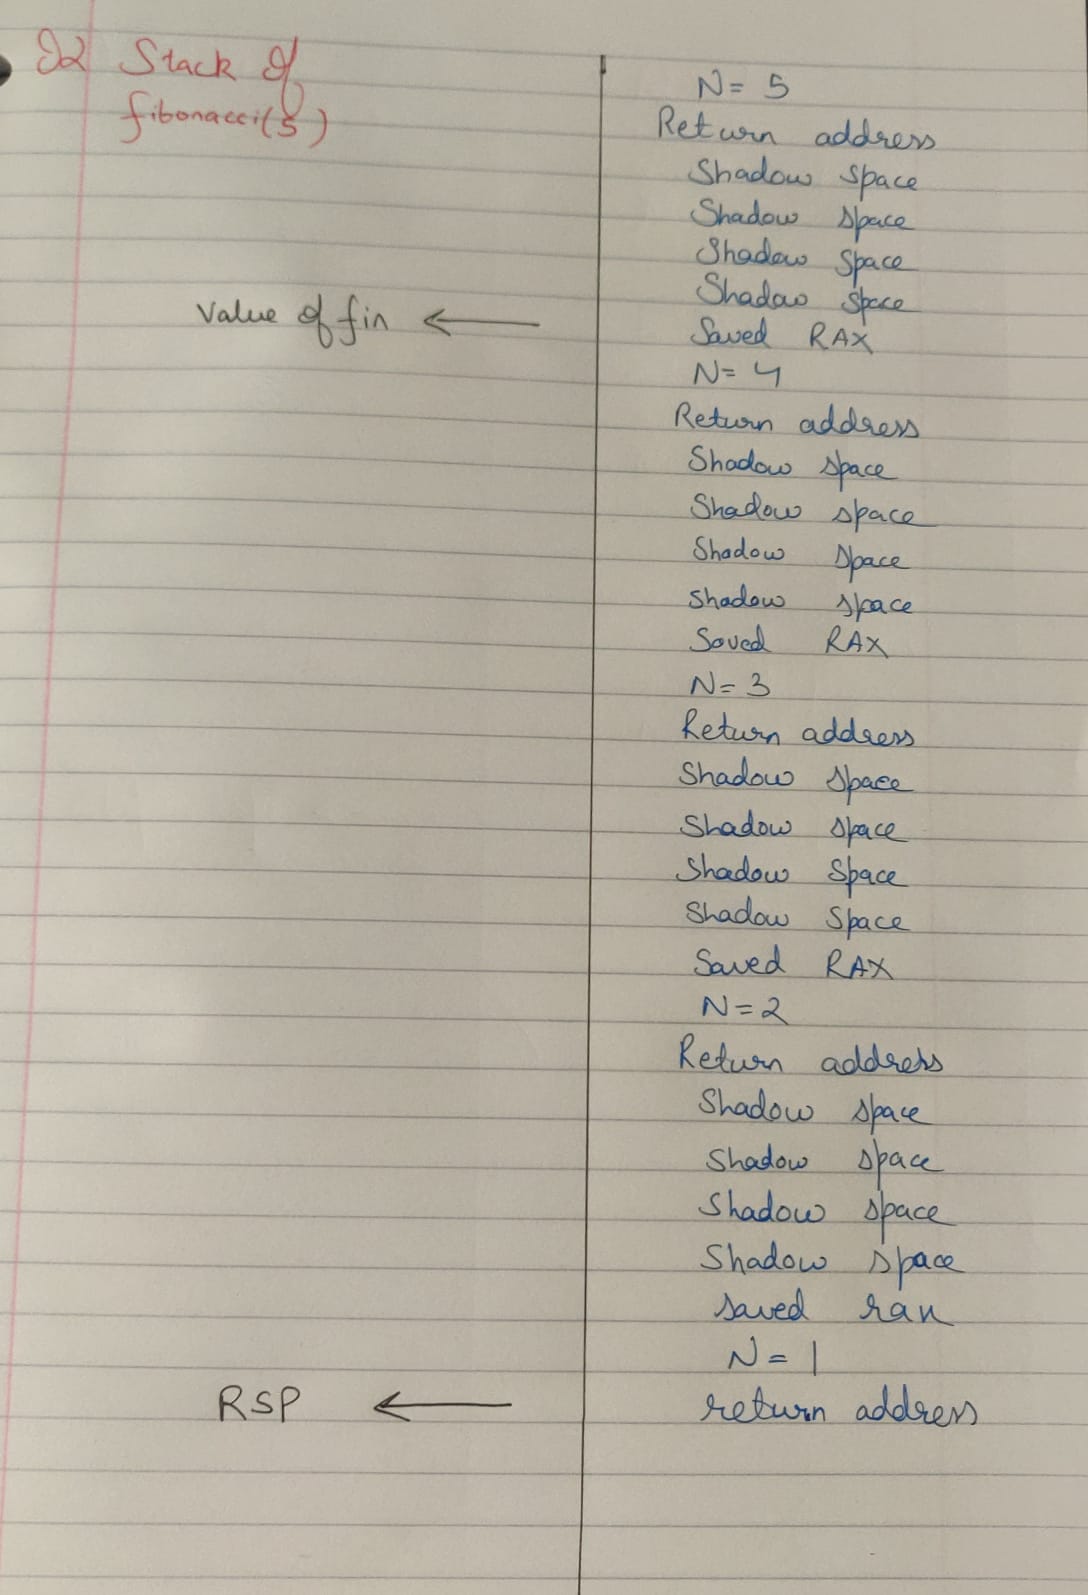 Q2 Stack of
fibonacci(5)
N= 5
Return address
Shadow space
Shadow space
Shadow space
Shadow space
Value of fin ←
Saved RAX
N= 4
Return address
Shadow space
Shadow space
Shadow space
Shadow space
Saved RAX
N= 3
Return address
Shadow space
Shadow space
Shadow space
Shadow space
Saved RAX
N=2
Return address
Shadow space
Shadow space
Shadow space
Shadow space
saved rax
N= 1
RSP ←
return address